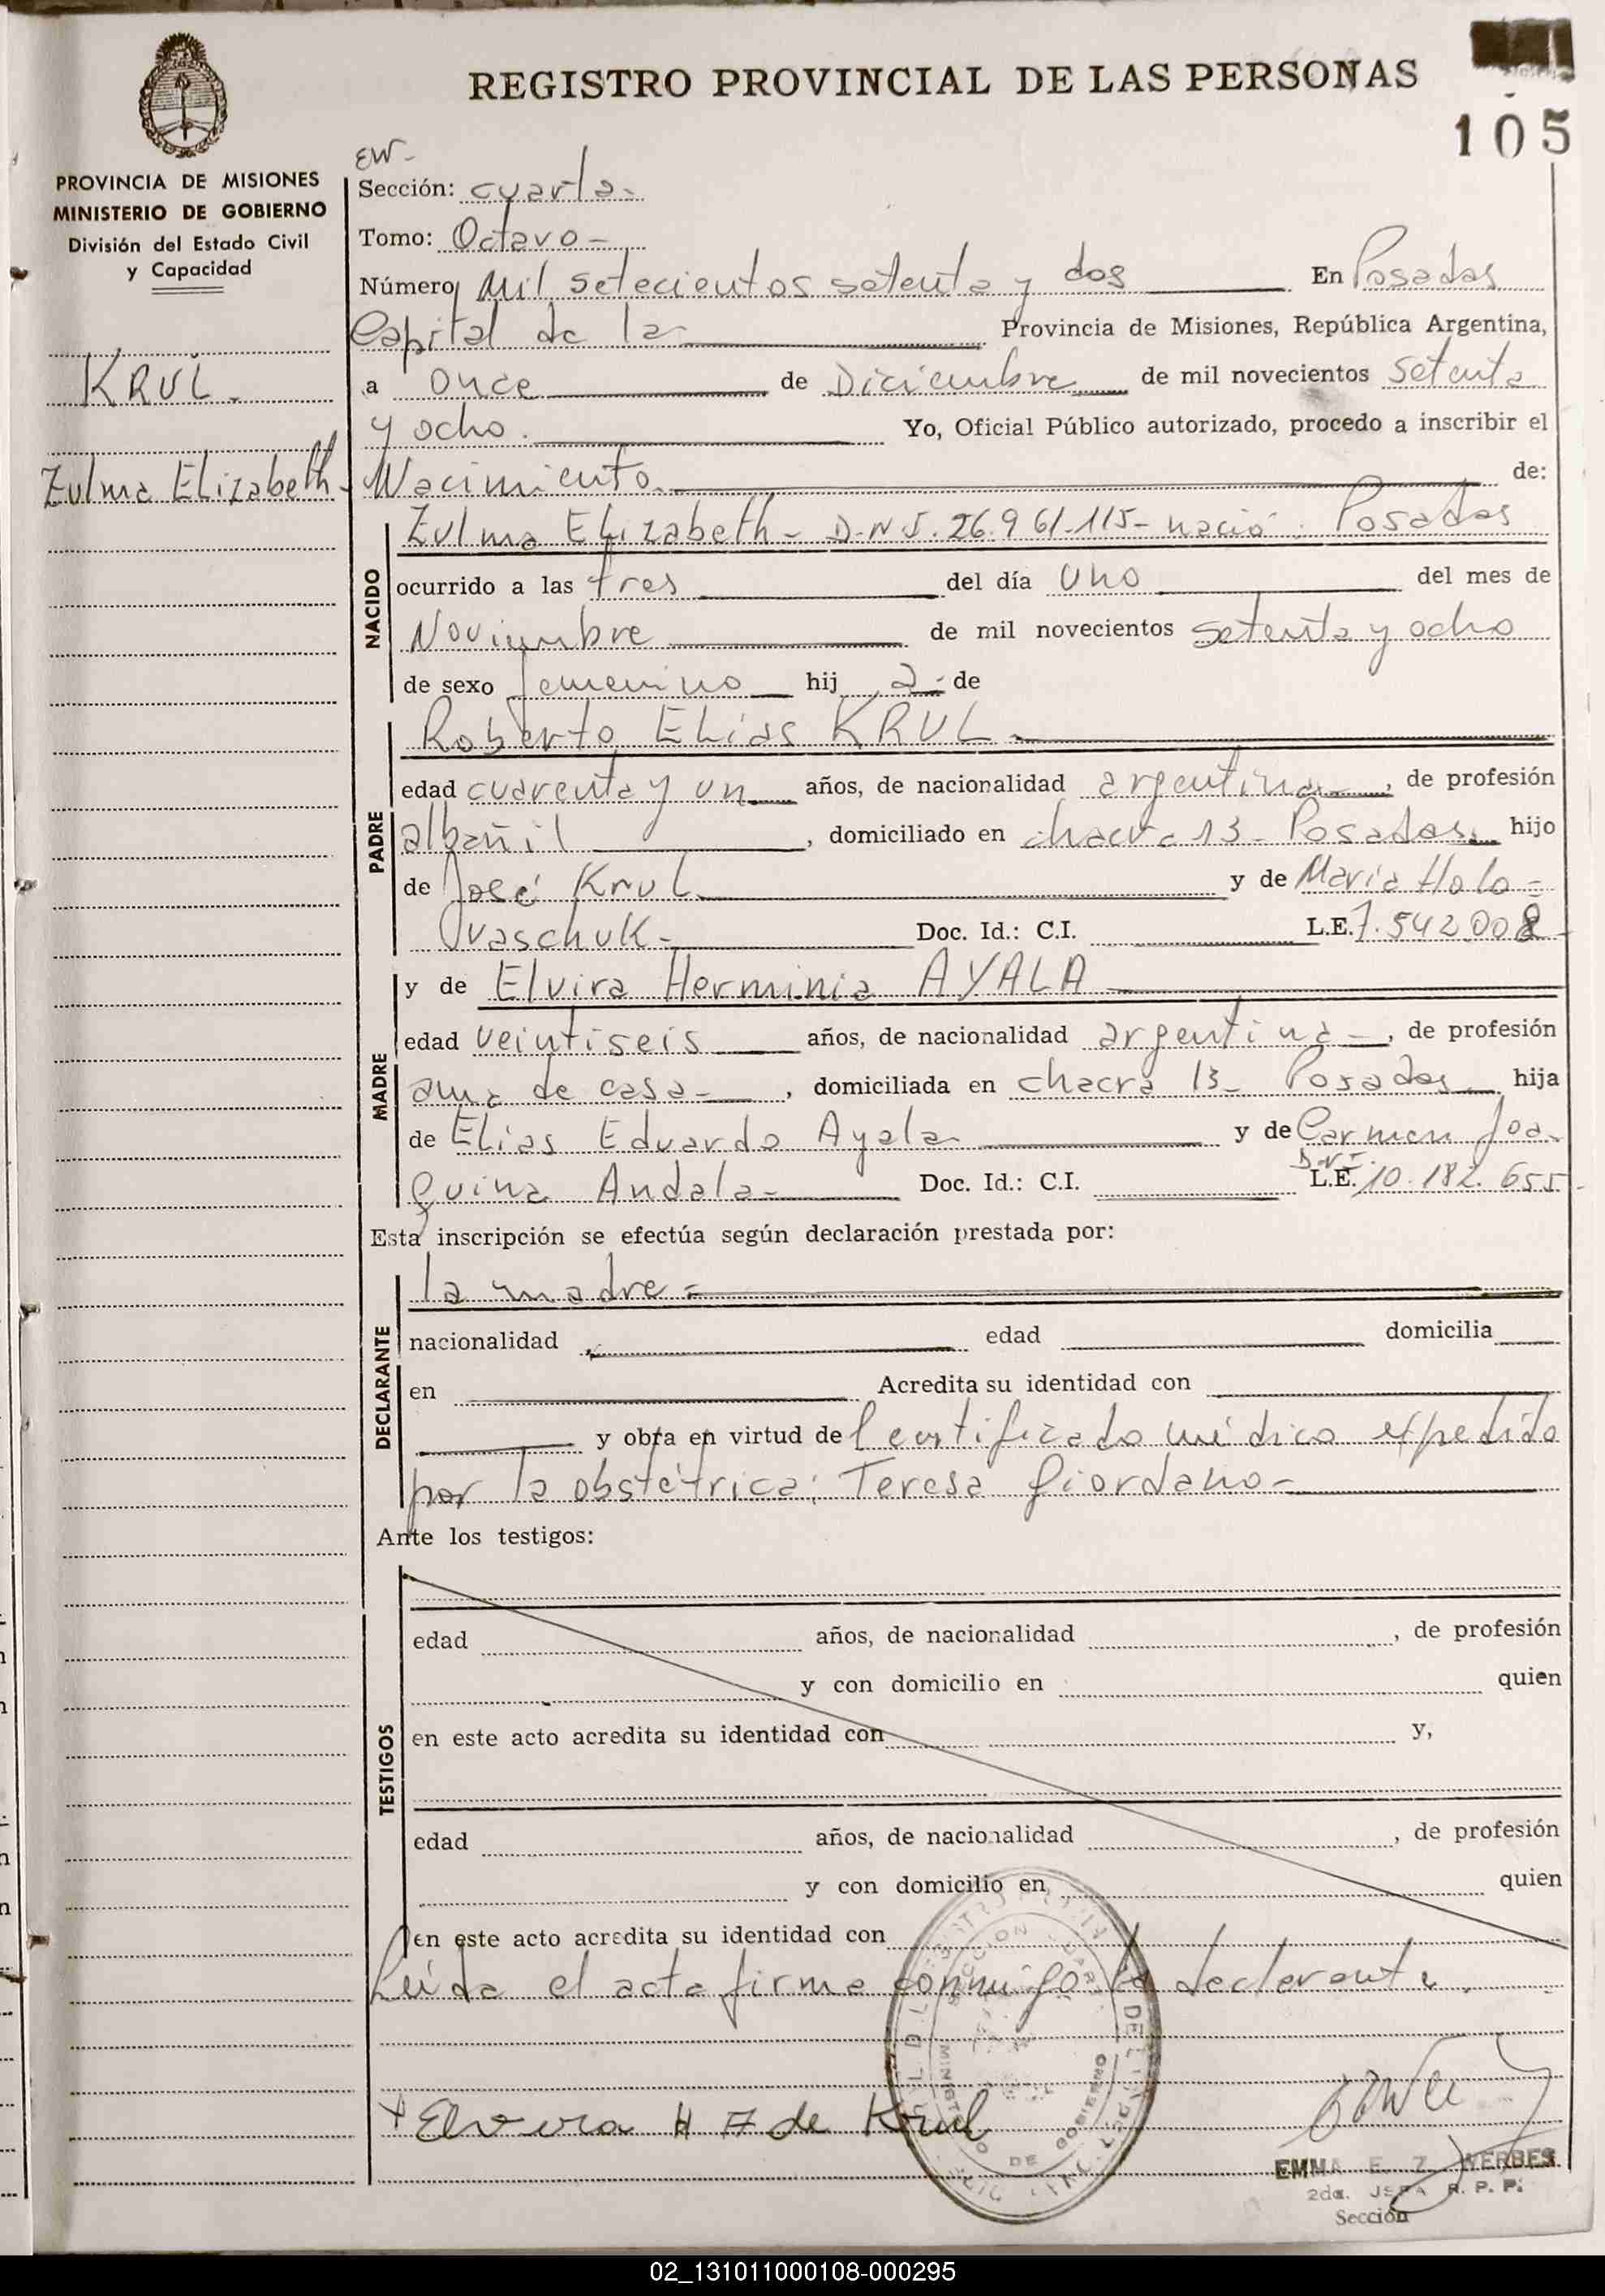 REGISTRO PROVINCIAL DE LAS PERSONAS
105
PROVINCIA DE MISIONES
MINISTERIO DE GOBIERNO
División del Estado Civil
y Capacidad
KRUL.
Zulma Elizabeth-
EW-
Sección: cuarta-
Tomo: Octavo-
Número Mil setecientos setenta y dos En Posadas
Capital de la Provincia de Misiones, República Argentina,
a once de Diciembre de mil novecientos setenta
y ocho. Yo, Oficial Público autorizado, procedo a inscribir el
Nacimiento de:
NACIDO
Zulma Elizabeth- D.N.I. 26.961.115- nació: Posadas
ocurrido a las tres del día uno del mes de
Noviembre de mil novecientos setenta y ocho
de sexo femenino hij a- de
PADRE
Roberto Elías KRUL-
edad cuarenta y un años, de nacionalidad argentina, de profesión
albañil, domiciliado en chacra 13- Posadas- hijo
de José Krul y de María Holo-
vaschuk- Doc. Id.: C.I. L.E. 7.542.008-
MADRE
y de Elvira Herminia AYALA
edad veintiseis años, de nacionalidad argentina-, de profesión
ama de casa-, domiciliada en chacra 13- Posadas- hija
de Elias Eduardo Ayala y de Carmen Joa-
quina Andala- Doc. Id.: C.I. D.N.I. L.E. 10.182.655-
Esta inscripción se efectúa según declaración prestada por:
DECLARANTE
la madre-
nacionalidad edad domicilia
en Acredita su identidad con
y obra en virtud de l certificado médico expedido
por la obstétrica: Teresa Giordano-
Ante los testigos:
TESTIGOS
edad años, de nacionalidad , de profesión
y con domicilio en quien
en este acto acredita su identidad con y,
edad años, de nacionalidad , de profesión
y con domicilio en quien
en este acto acredita su identidad con
Leida el acta firma conmigo la declarante.
MINISTERIO DE GOBIERNO
Elvira H A de Krul
EMMA E. Z. WERBES
2da. JEFA R. P. P.
Sección
02_131011000108-000295